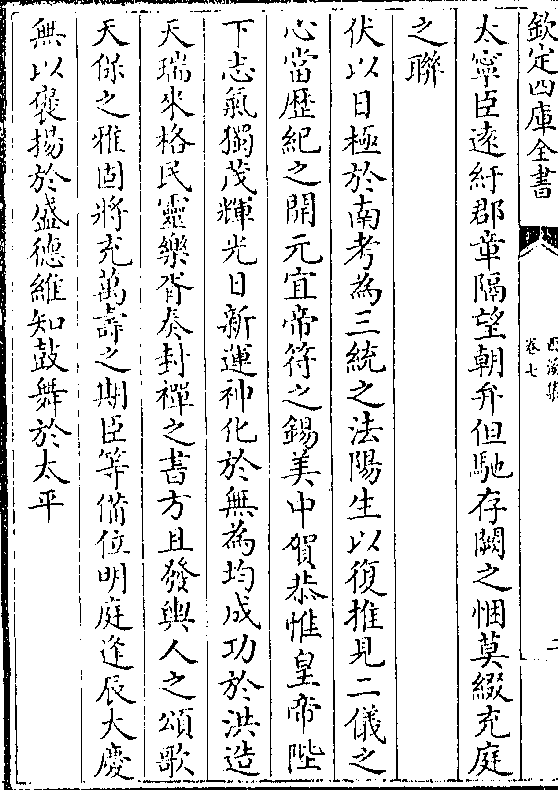 欽定四庫全書
卷七
二
太寧臣遠紆郡章隔望朝弁但馳存闕之悃莫綴充庭
之聯
伏以日極於南考為三統之法陽生以復推見二儀之
心當歴紀之開元宜帝符之錫美中賀恭惟皇帝陛
下志氣獨茂輝光日新運神化於無為均成功於洪造
天瑞來格民靈樂胥奏封禪之書方且發輿人之頌歌
天保之雅固將充萬壽之期臣等備位明庭逢辰大慶
無以襃揚於盛德維知鼓舞於太平